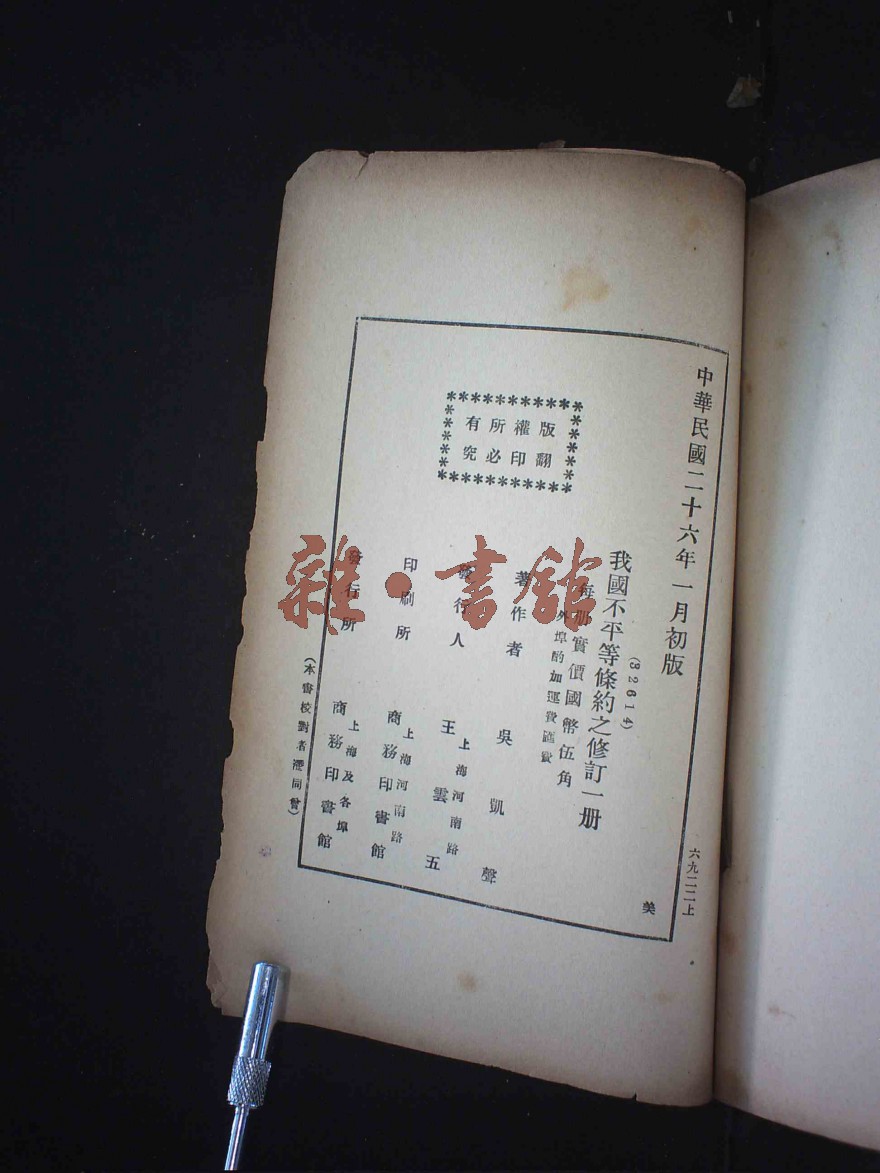 中華民國二十六年一月初版
六九二二上
(32614)
我國不平等條約之修訂一册
美
每册實價國幣伍角
外埠酌加運費匯費
版權所有
翻印必究
著作者 吳凱聲
發行人 王雲五
上海河南路
印刷所 商務印書館
上海河南路
發行所 商務印書館
上海及各埠
(本書校對者
雜·書館